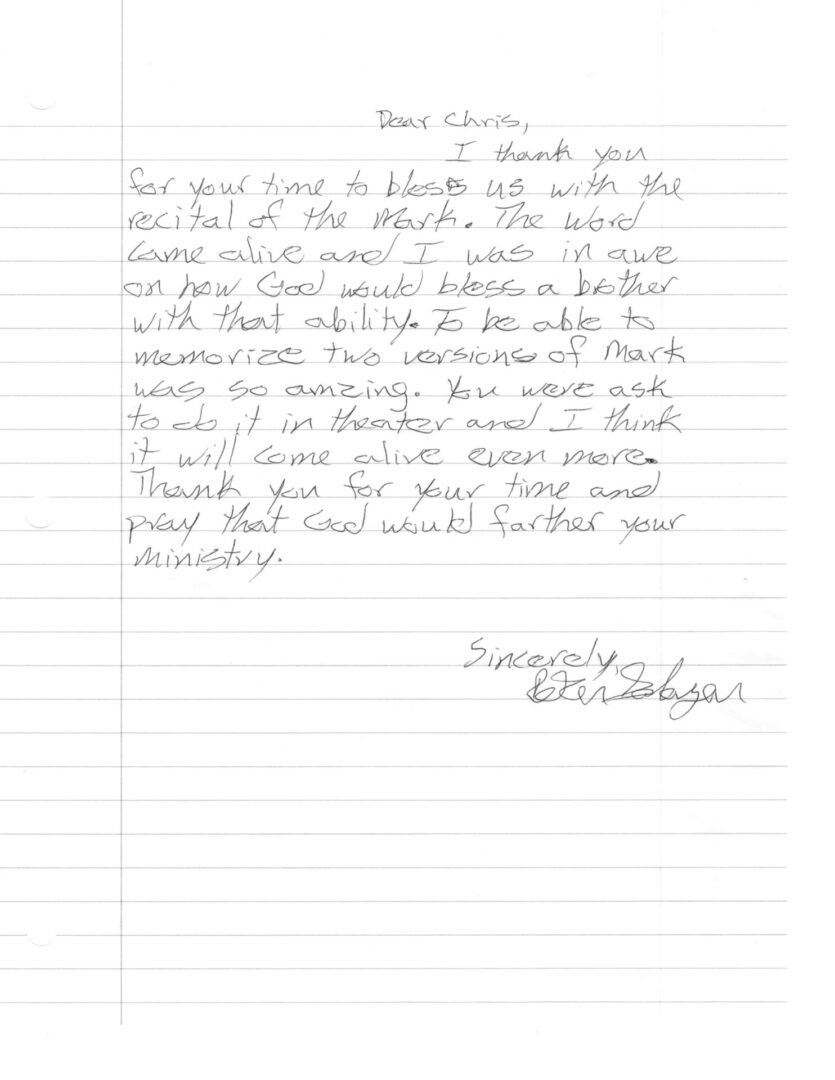 Dear Chris,
I thank you
for your time to bless us with the
recital of the Mark. The Word
came alive and I was in awe
on how God would bless a brother
with that ability. To be able to
memorize two versions of Mark
was so amzing. You were ask
to do it in theater and I think
it will come alive even more.
Thank you for your time and
pray that God would farther your
ministry.
Sincerely,
Peter Salazar